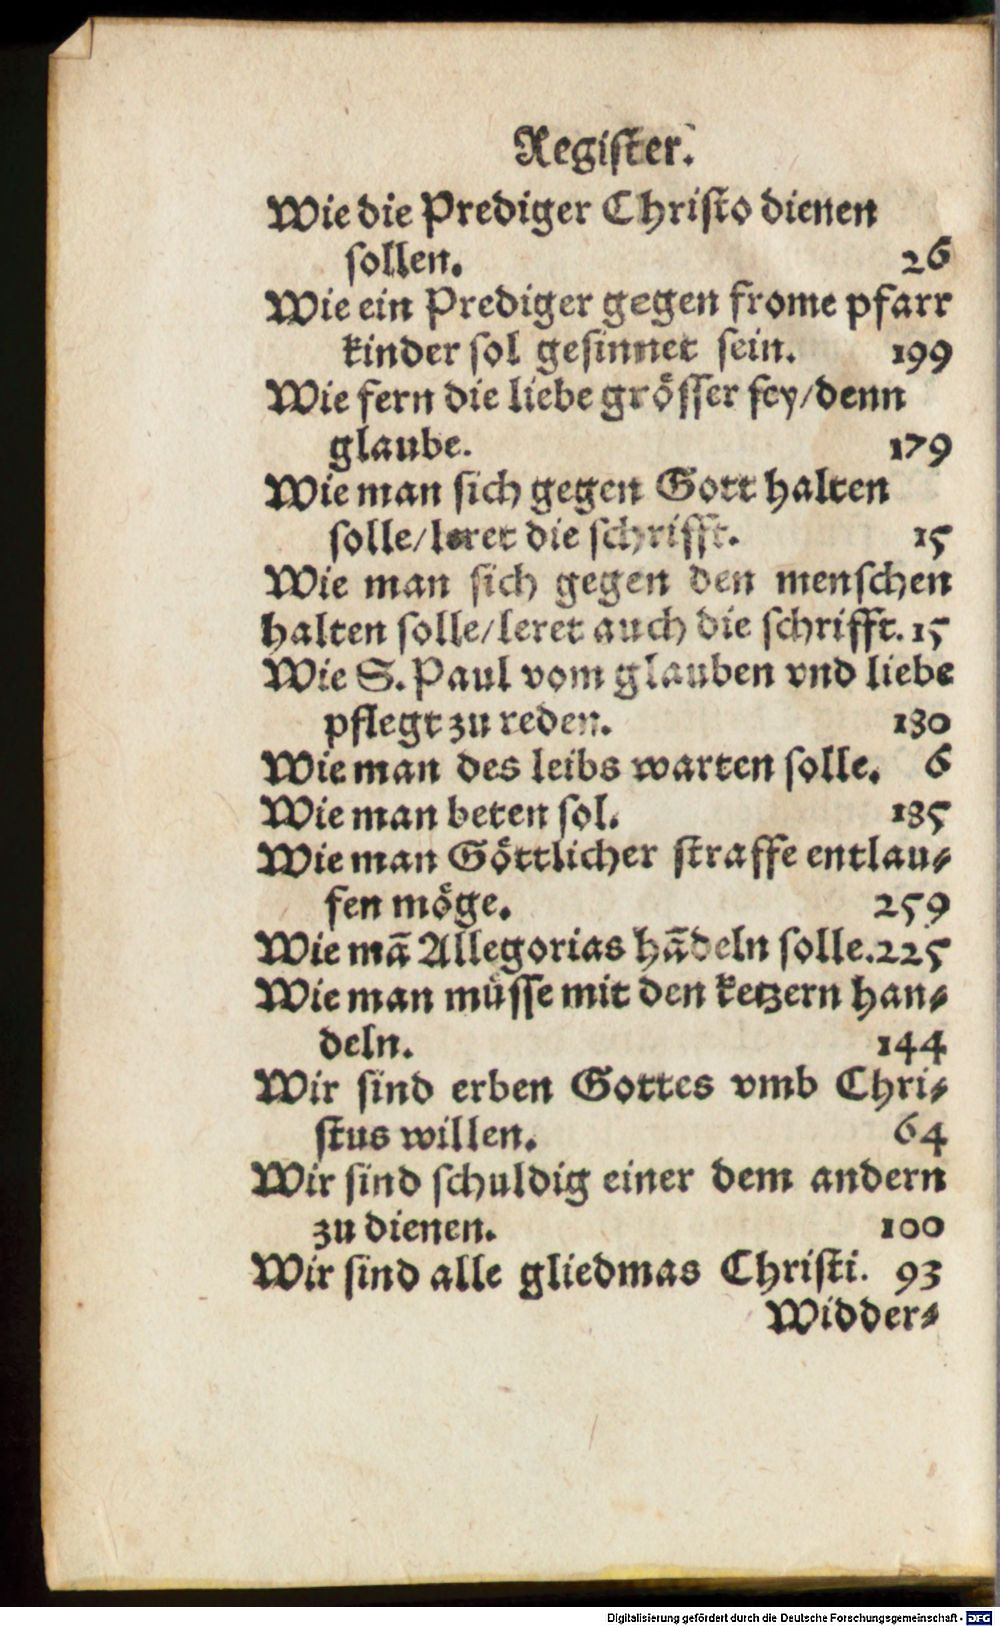 Register.
Wie die Prediger Christo dienen
sollen. 26
Wie ein Prediger gegen frome pfarr
kinder sol gesinnet sein. 199
Wie fern die liebe grösser sey/denn
glaube. 179
Wie man sich gegen Gott halten
solle/leret die schrifft. 15
Wie man sich gegen den menschen
halten solle/leret auch die schrifft. 15
Wie S. Paul vom glauben vnd liebe
pflegt zu reden. 180
Wie man des leibs warten solle. 6
Wie man beten sol. 185
Wie man Göttlicher straffe entlau⸗
fen möge. 259
Wie mã Allegorias hãdeln solle. 225
Wie man müsse mit den ketzern han⸗
deln. 144
Wir sind erben Gottes vmb Chri⸗
stus willen. 64
Wir sind schuldig einer dem andern
zu dienen. 100
Wir sind alle gliedmas Christi. 93
Widder⸗
Digitalisierung gefördert durch die Deutsche Forschungsgemeinschaft - DFG